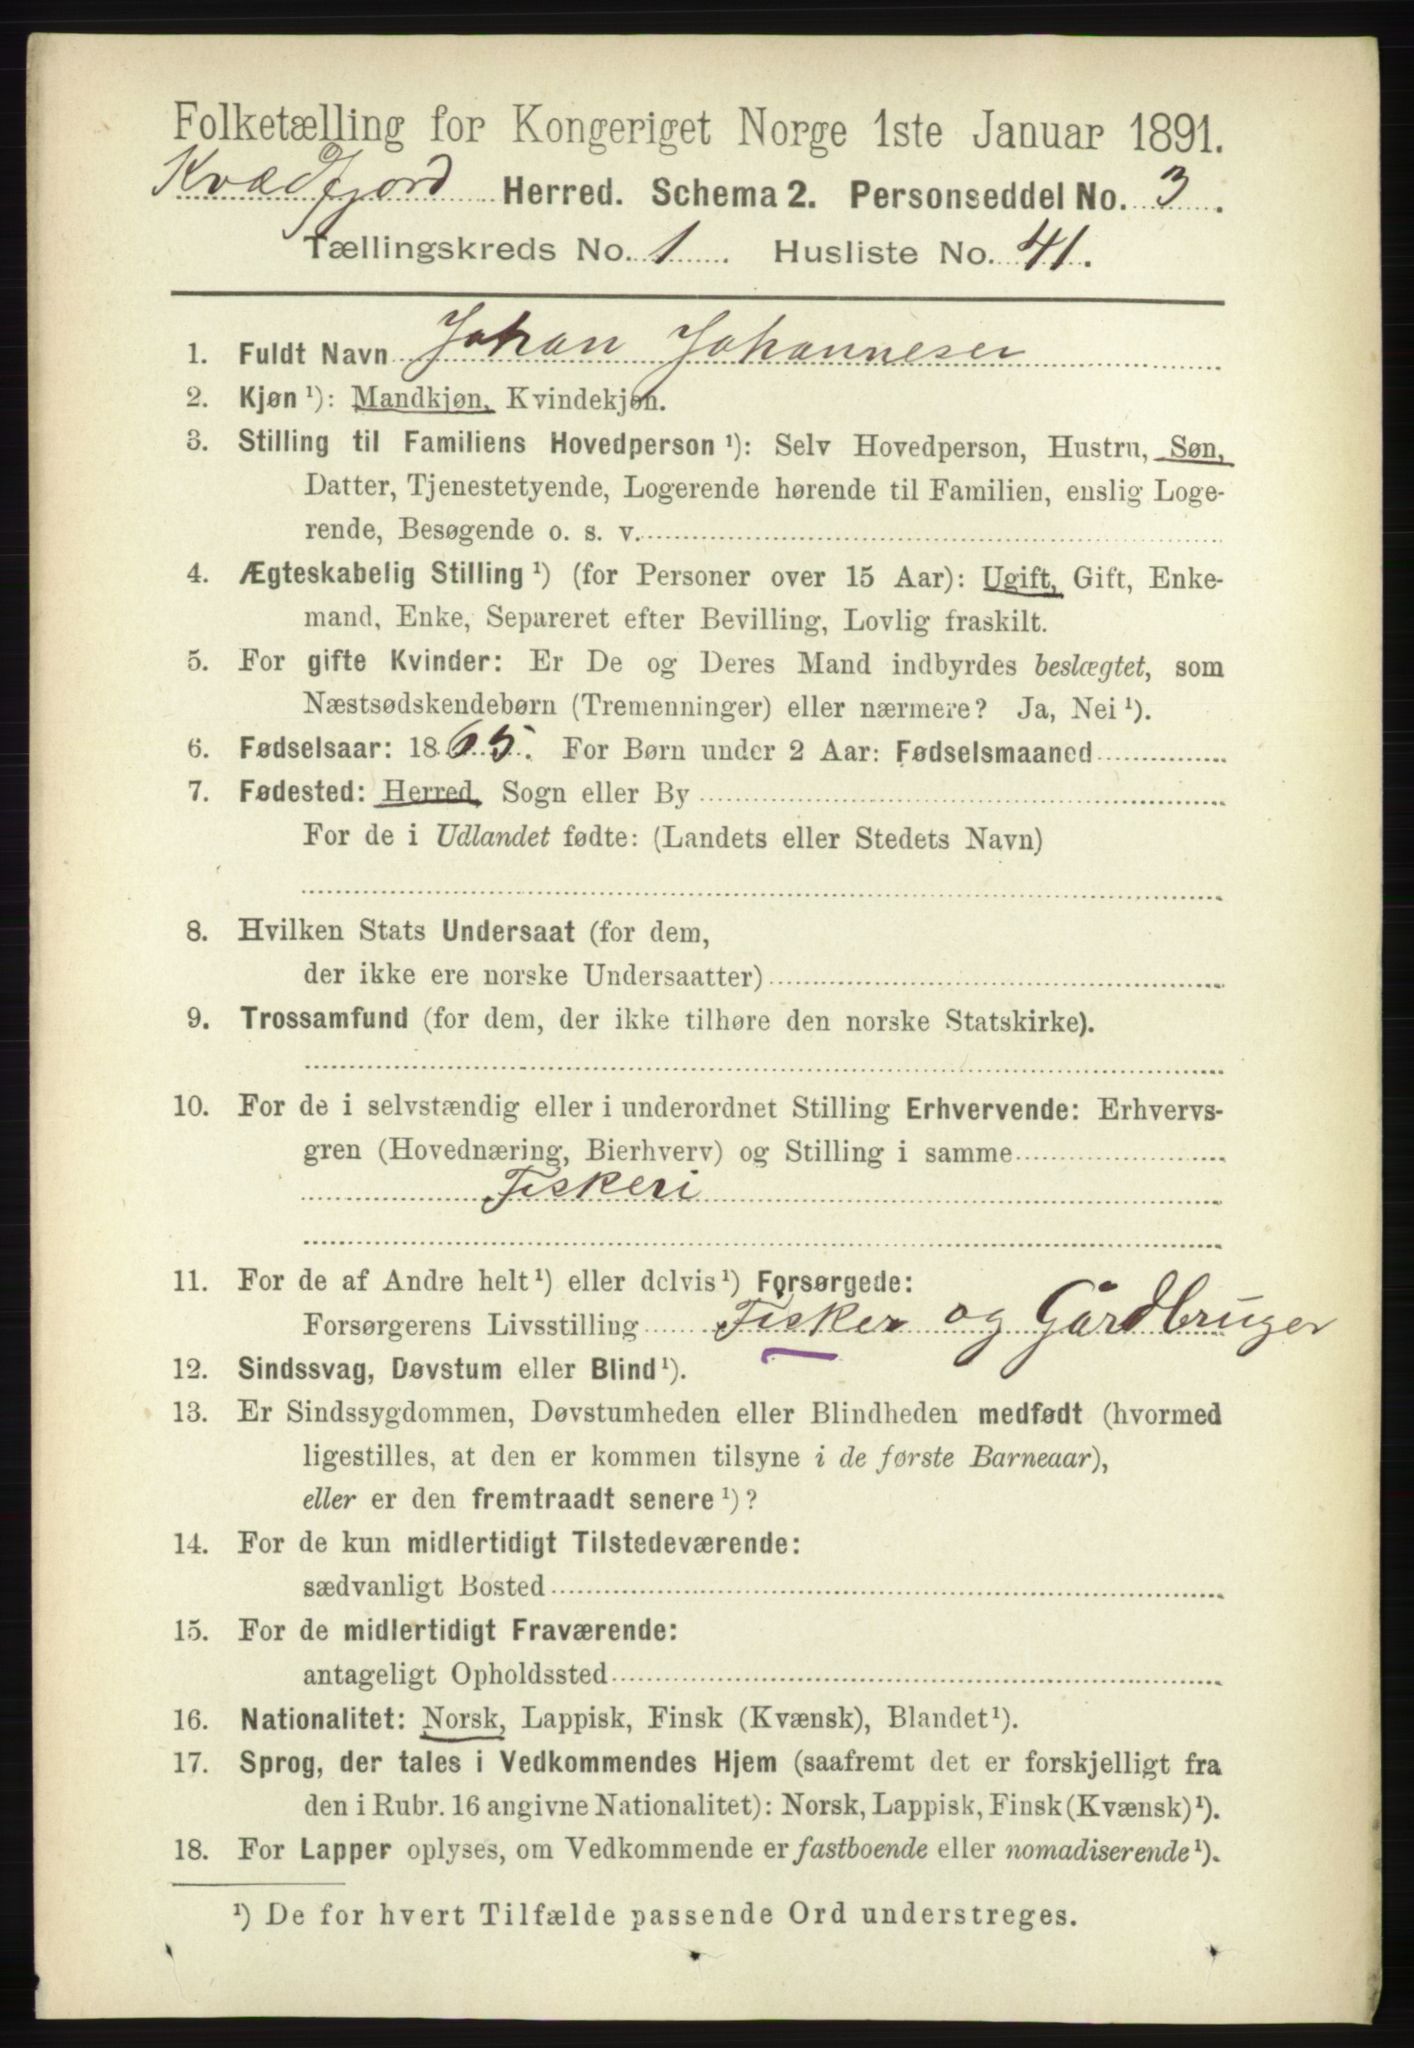 Folketælling for Kongeriget Norge 1ste Januar 1891.
Kvædfjord Herred. Schema 2. Personseddel No. 3.
Tællingskreds No. 1. Husliste No. 41.
1. Fuldt Navn Johan Johannesen
2. Kjøn ¹): Mandkjøn, Kvindekjøn.
3. Stilling til Familiens Hovedperson ¹): Selv Hovedperson, Hustru, Søn,
Datter, Tjenestetyende, Logerende hørende til Familien, enslig Loge-
rende, Besøgende o. s. v.
4. Ægteskabelig Stilling ¹) (for Personer over 15 Aar): Ugift, Gift, Enke-
mand, Enke, Separeret efter Bevilling, Lovlig fraskilt.
5. For gifte Kvinder: Er De og Deres Mand indbyrdes beslægtet, som
Næstsødskendebørn (Tremenninger) eller nærmere? Ja, Nei ¹).
6. Fødselsaar: 1865. For Børn under 2 Aar: Fødselsmaaned
7. Fødested: Herred, Sogn eller By
For de i Udlandet fødte: (Landets eller Stedets Navn)
8. Hvilken Stats Undersaat (for dem,
der ikke ere norske Undersaatter)
9. Trossamfund (for dem, der ikke tilhøre den norske Statskirke).
10. For de i selvstændig eller i underordnet Stilling Erhvervende: Erhvervs-
gren (Hovednæring, Bierhverv) og Stilling i samme
Fiskeri
11. For de af Andre helt ¹) eller delvis ¹) Forsørgede:
Forsørgerens Livsstilling Fisker og Gårdbruger
12. Sindssvag, Døvstum eller Blind ¹).
13. Er Sindssygdommen, Døvstumheden eller Blindheden medfødt (hvormed
ligestilles, at den er kommen tilsyne i de første Barneaar),
eller er den fremtraadt senere ¹)?
14. For de kun midlertidigt Tilstedeværende:
sædvanligt Bosted
15. For de midlertidigt Fraværende:
antageligt Opholdssted
16. Nationalitet: Norsk, Lappisk, Finsk (Kvænsk), Blandet ¹).
17. Sprog, der tales i Vedkommendes Hjem (saafremt det er forskjelligt fra
den i Rubr. 16 angivne Nationalitet): Norsk, Lappisk, Finsk (Kvænsk) ¹).
18. For Lapper oplyses, om Vedkommende er fastboende eller nomadiserende ¹).
¹) De for hvert Tilfælde passende Ord understreges.